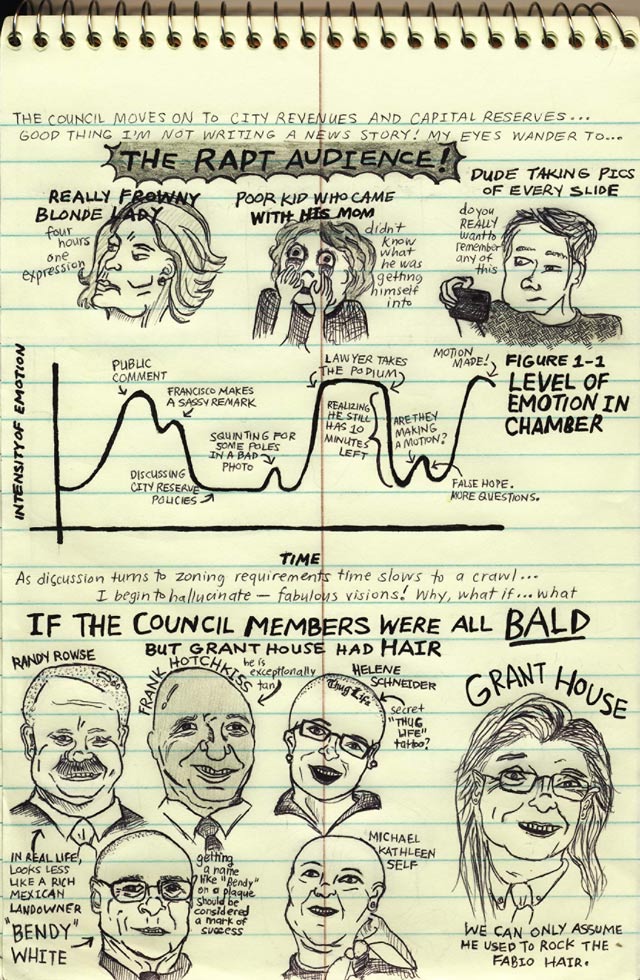 THE COUNCIL MOVES ON TO CITY REVENUES AND CAPITAL RESERVES...
GOOD THING I'M NOT WRITING A NEWS STORY! MY EYES WANDER TO...
THE RAPT AUDIENCE!
REALLY FROWNY
BLONDE LADY
four
hours
one
expression
POOR KID WHO CAME
WITH HIS MOM
didn't
know
what
he was
getting
himself
into
DUDE TAKING PICS
OF EVERY SLIDE
do you
REALLY
want to
remember
any of
this
INTENSITY OF EMOTION
PUBLIC
COMMENT
FRANCISCO MAKES
A SASSY REMARK
DISCUSSING
CITY RESERVE
POLICIES
SQUINTING FOR
SOME POLES
IN A BAD
PHOTO
LAWYER TAKES
THE PODIUM
REALIZING
HE STILL
HAS 10
MINUTES
LEFT
ARE THEY
MAKING
A MOTION?
MOTION
MADE!
FALSE HOPE.
MORE QUESTIONS.
FIGURE 1-1
LEVEL OF
EMOTION IN
CHAMBER
TIME
As discussion turns to zoning requirements time slows to a crawl...
I begin to hallucinate — fabulous visions! Why, what if... what
IF THE COUNCIL MEMBERS WERE ALL BALD
BUT GRANT HOUSE HAD HAIR
RANDY ROWSE
IN REAL LIFE,
LOOKS LESS
LIKE A RICH
MEXICAN
LANDOWNER
FRANK HOTCHKISS
he is
exceptionally
tan
HELENE
SCHNEIDER
Thug Life
secret
"THUG
LIFE"
tattoo?
"BENDY"
WHITE
getting
a name
like "Bendy"
on a plaque
should be
considered
a mark of
success
MICHAEL
KATHLEEN
SELF
GRANT HOUSE
WE CAN ONLY ASSUME
HE USED TO ROCK THE
FABIO HAIR.